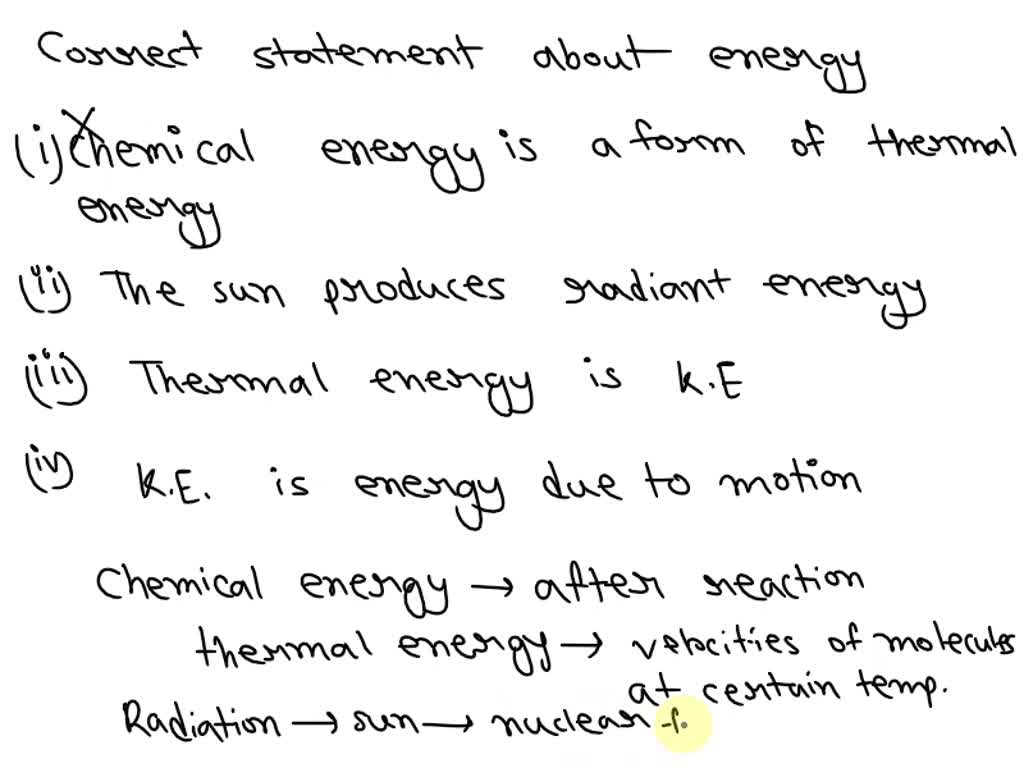 Correct statement about energy
(i) Chemical energy is a form of thermal
energy
(ii) The sun produces radiant energy
(iii) Thermal energy is K.E
(iv) K.E. is energy due to motion
Chemical energy → after reaction
thermal energy → velocities of molecules
at certain temp.
Radiation → sun → nuclear f